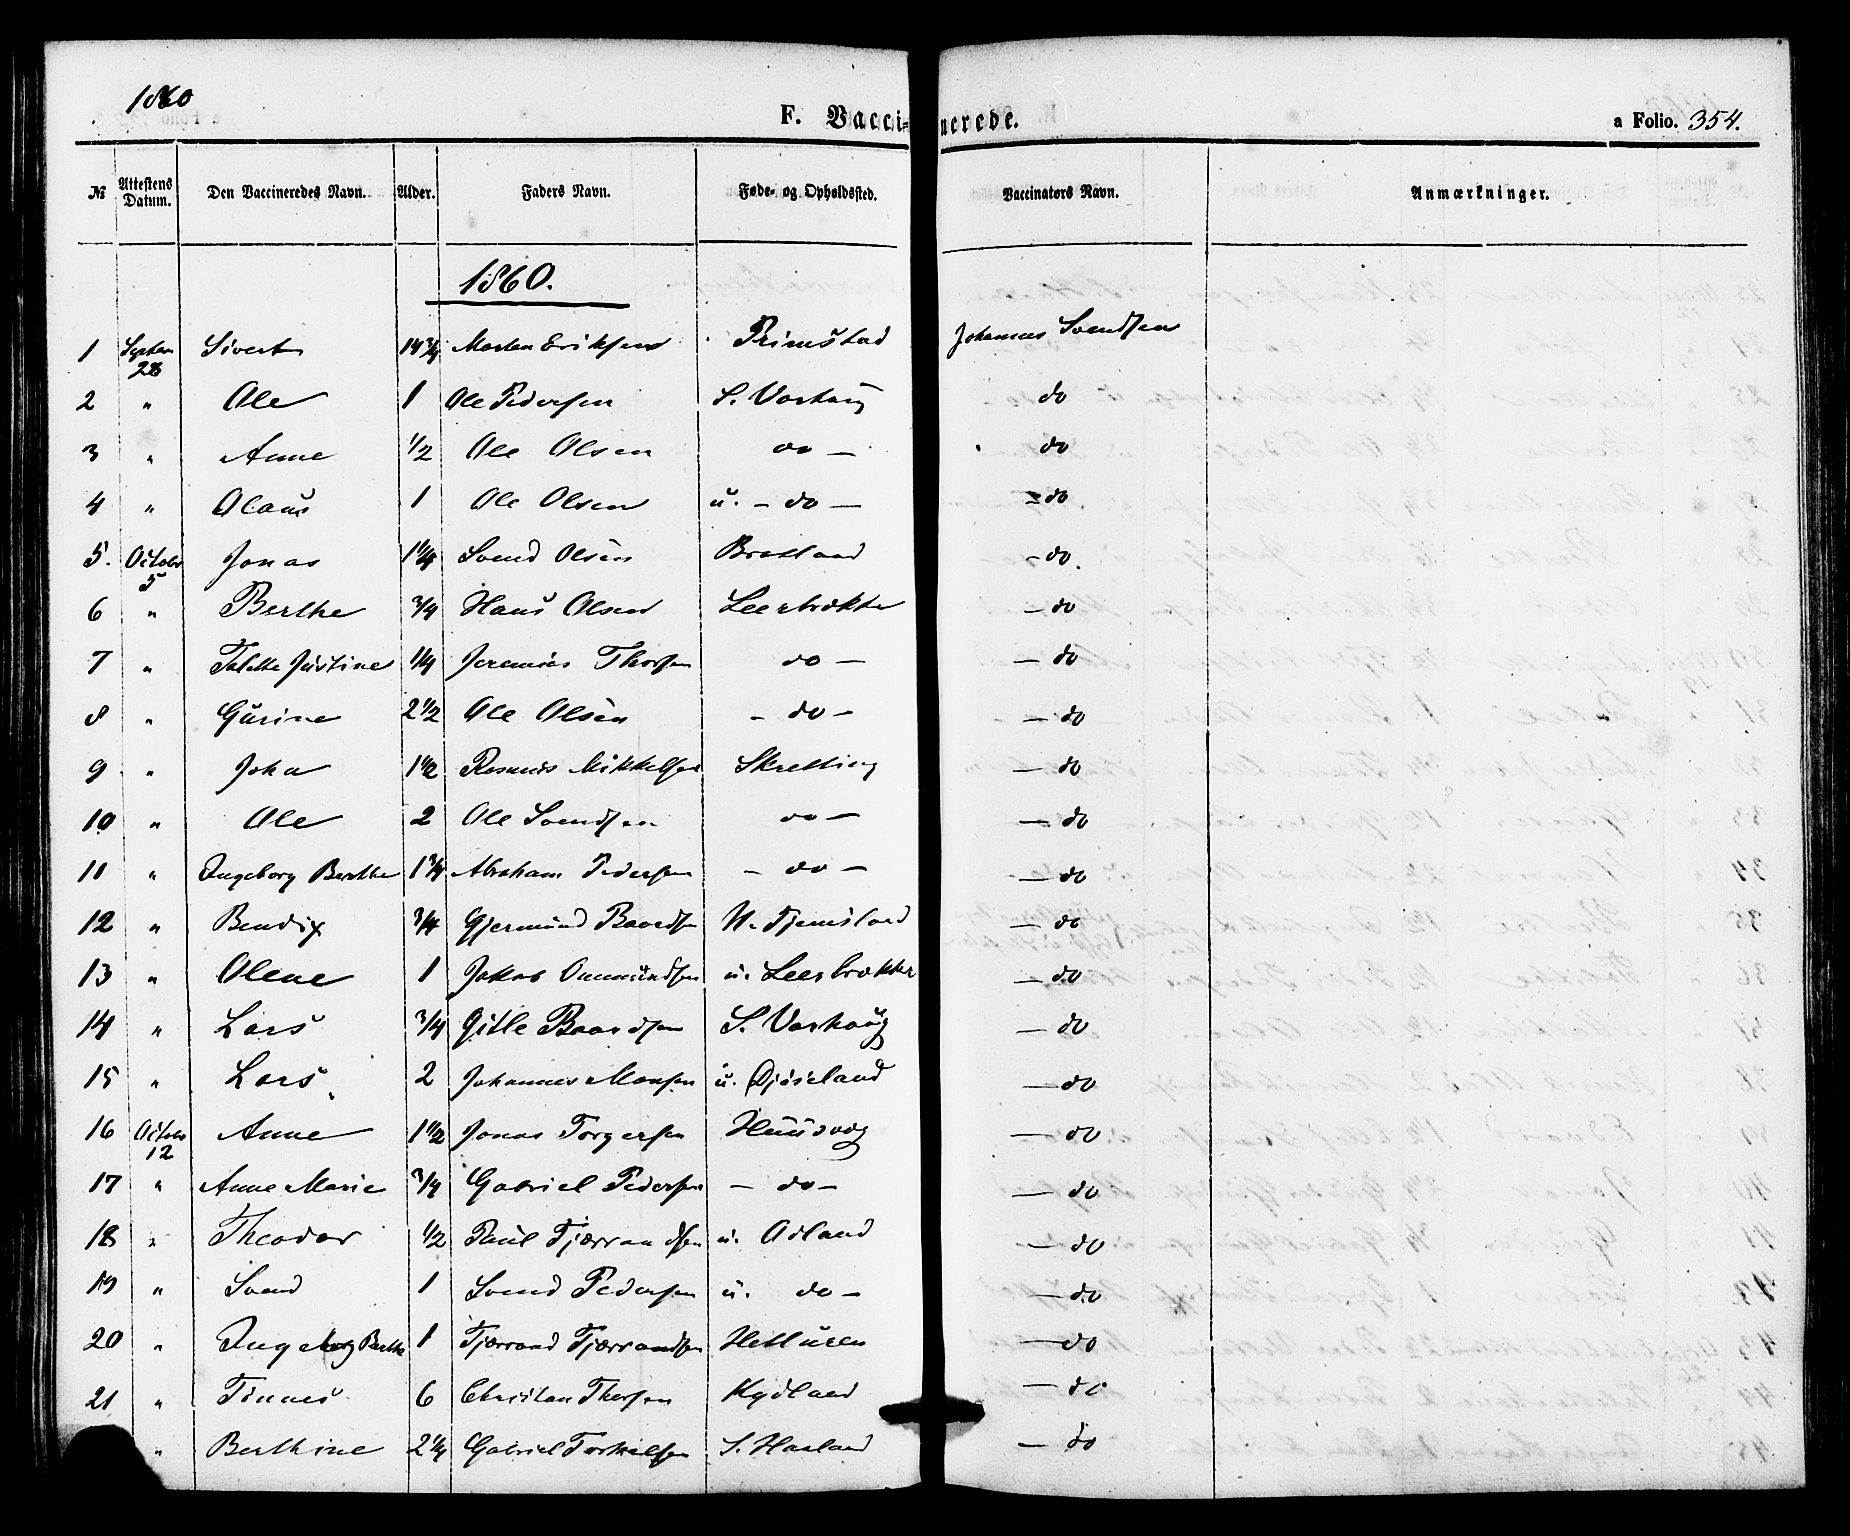 1860
F. Vaccinerede.
a Folio. 354.
№ Attestens Datum. Den Vaccineredes Navn. Alder. Faders Navn. Føde- og Opholdssted. Vaccinators Navn. Anmærkninger.
1860.
1 Septem 28 Sivert 14 3/4 Morten Eriksen Primstad Johannes Svendsen
2 " Ole 1 Ole Pedersen S. Varhaug do
3 " Anne 1/2 Ole Olsen do — do
4 " Olaus 1 Ole Olsen u. - do — - do
5. Octobr 5 Jonas 1 1/4 Svend Olsen Bratland - do.
6 " Berthe 3/4 Hans Olsen Leerbrække — do
7 " Talette Justine 1/4 Jeremias Thorsen do — — do
8 " Gurine 2 1/2 Ole Olsen - do - — do
9 " John 1 1/2 Rasmus Mikkelsen Skretting — do
10 " Ole 2 Ole Svendsen do — — do
11 " Ingeborg Berthe 1 3/4 Abraham Pedersen - do — — do
12 " Bendix 3/4 Gjermund Baardsen N. Tjemsland — do
13 " Olene 1 Jakob Ommundsen u. Leerbrække — do
14 " Lars 3/4 Gitle Baardsen S. Varhaug — do
15 " Lars 2 Johannes Monsen u. Djuseland — do
16 Octobr 12 Anne 1 1/2 Jonas Torgersen Huusveg — do
17 " Anne Marie 3/4 Gabriel Pedersen — do - — do
18 " Theodor 1/2 Paul Tjærrandsen u. Adland — do
19 " Svend 1 Svend Pedersen u. do - — do
20 " Ingeborg Berthe 1 Tjærrand Tjærrandsen Hetluren — do
21 " Tønnes 6 Christian Thorsen Kydland — do
" Berthine 2 1/4 Gabriel Torkelsen S. Haaland — do